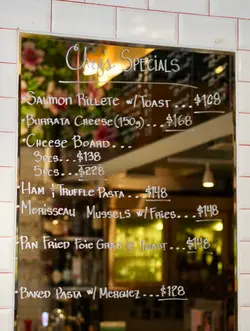 Chef's Specials
- Salmon Rillete w/Toast...$108
- Burrata Cheese (150g)...$168
- Cheese Board...
3pcs...$138
5pcs...$228
- Ham & Truffle Pasta...$148
- Morisseau Mussels w/ Fries...$148
- Pan Fried Foie Gras & Toast...$148
- Baked Pasta w/ Merguez...$128